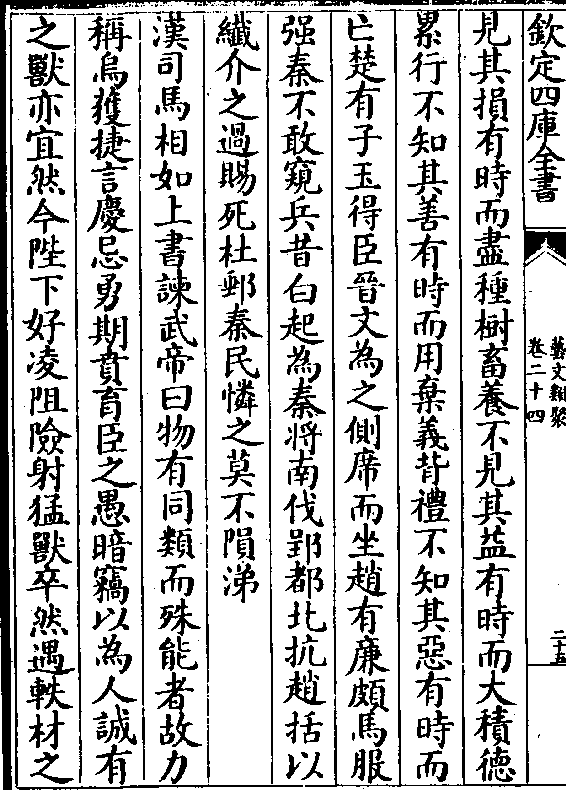 欽定四庫全書
藝文類聚
卷二十四
二十五
見其損有時而盡種樹畜養不見其益有時而大積德
累行不知其善有時而用棄義背禮不知其惡有時而
亡楚有子玉得臣晉文為之側席而坐趙有廉頗馬服
强秦不敢窺兵昔白起為秦將南伐郢都北抗趙括以
纖介之過賜死杜郵秦民憐之莫不隕涕
漢司馬相如上書諫武帝曰物有同類而殊能者故力
稱烏獲捷言慶忌勇期賁育臣之愚暗竊以為人誠有
之獸亦宜然今陛下好凌阻險射猛獸卒然遇軼材之